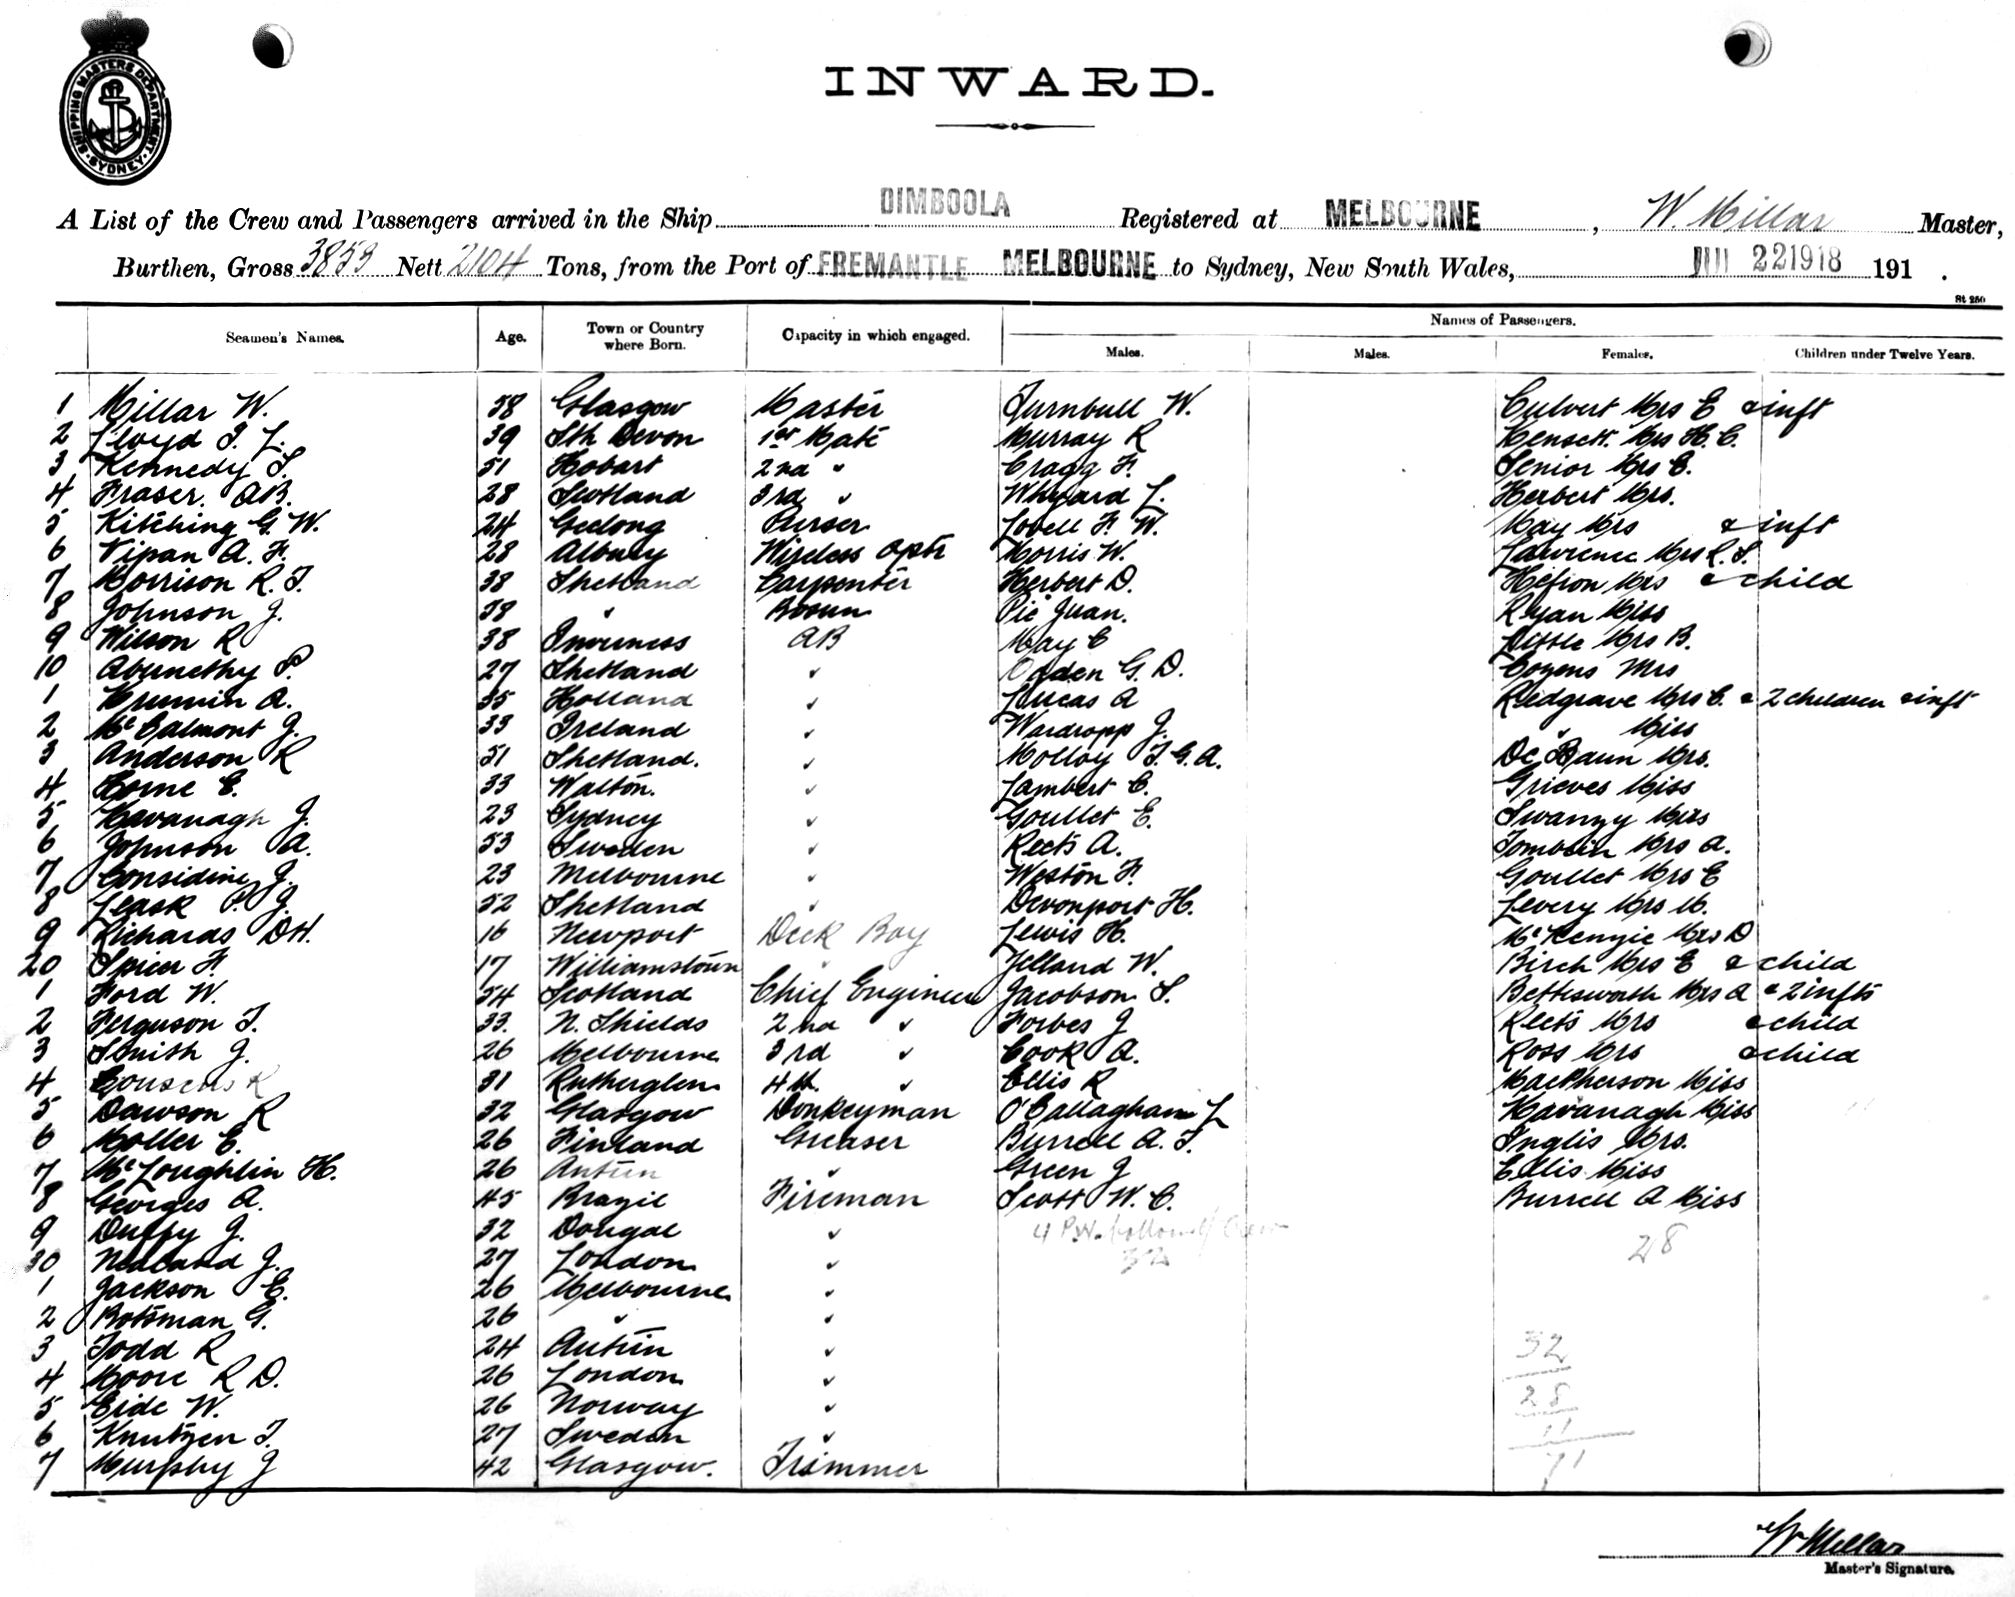 SHIPPING MASTERS DEPARTMENT · SYDNEY ·
INWARD.
A List of the Crew and Passengers arrived in the Ship DIMBOOLA Registered at MELBOURNE, W. Millar Master,
Burthen, Gross 3853 Nett 2104 Tons, from the Port of FREMANTLE MELBOURNE to Sydney, New South Wales, 22 1918 191 .
St 250
Seamen's Names. Age. Town or Country where Born. Capacity in which engaged. Names of Passengers.
Males. Males. Females. Children under Twelve Years.
1 Millar W. 58 Glasgow Master Turnbull W. Culvert Mrs E & inft
2 Lloyd J. L. 39 Sth Devon 1st Mate Murray R Hensett Mrs H. C.
3 Kennedy S. 51 Hobart 2nd " Cragg F. Senior Mrs E.
4 Fraser. AB. 28 Scotland 3rd " Whyard L. Herbert Mrs.
5 Kitching G. W. 24 Geelong Purser Lovell F. W. May Mrs & inft
6 Vipan A. F. 28 Albury Wireless Optr Morris W. Lawrence Mrs R. S.
7 Morrison R. J. 38 Shetland Carpenter Herbert D. Mrs & child
8 Johnson J. 58 " Bosun Pie Juan. Ryan Miss
9 Wilson R 38 Inverness AB May C Little Mrs B.
10 Abernethy P. 27 Shetland " Ogden G. D. Cozens Mrs
1 A. 35 Holland " Lucas A Redgrave Mrs C. & 2 children & inft
2 McCalmont J. 33 Ireland " Wardropp J. " Miss
3 Anderson R 51 Shetland. " Molloy T. G. A. De Baun Mrs.
4 Horne E. 33 Walton. " Lambert C. Grieves Miss
5 Kavanagh J. 23 Sydney " Goullet E. Swanzy Mrs
6 Johnson A. 53 Sweden " Reets A. Tomblin Mrs A.
7 Considine J. 23 Melbourne " Weston F. Goullet Mrs E
8 Leask P. J. 52 Shetland " Devonport H. Levery Mrs M.
9 Richards DH. 16 Newport Deck Boy Lewis H. McKenzie Mrs D
20 Spicer F. 17 Williamstown " Jelland W. Birch Mrs E & child
1 Ford W. 54 Scotland Chief Engineer Jacobson S. Bettesworth Mrs A & 2 infts
2 Ferguson T. 33. N. Shields 2nd " Forbes J Reets Mrs & child
3 Smith J. 26 Melbourne 3rd " Cook A. Ross Mrs & child
4 Cousens R 31 Rutherglen 4th " Ellis R MacPherson Miss
5 Dawson R 32 Glasgow Donkeyman O'Callaghan L Kavanagh Miss
6 Moller E. 26 Finland Greaser Burrell A. T. Inglis Mrs.
7 McLoughlin H. 26 Antrim " Green J Ellis Miss
8 Georges A. 45 Brazil Fireman Scott W. C. Burrell A Miss
9 Duffy J. 32 Dongal " 4 P.W. 28
30 J. 27 London " 32
1 Jackson E. 26 Melbourne "
2 Botsman G. 26 " "
3 Todd R 24 Antrim " 32
4 Moore R D. 26 London "
5 Eide W. 26 Norway " 28
6 Knutzen T. 27 Sweden " 11
7 Murphy J 42 Glasgow. Trimmer 71
W Millar
Master's Signature.